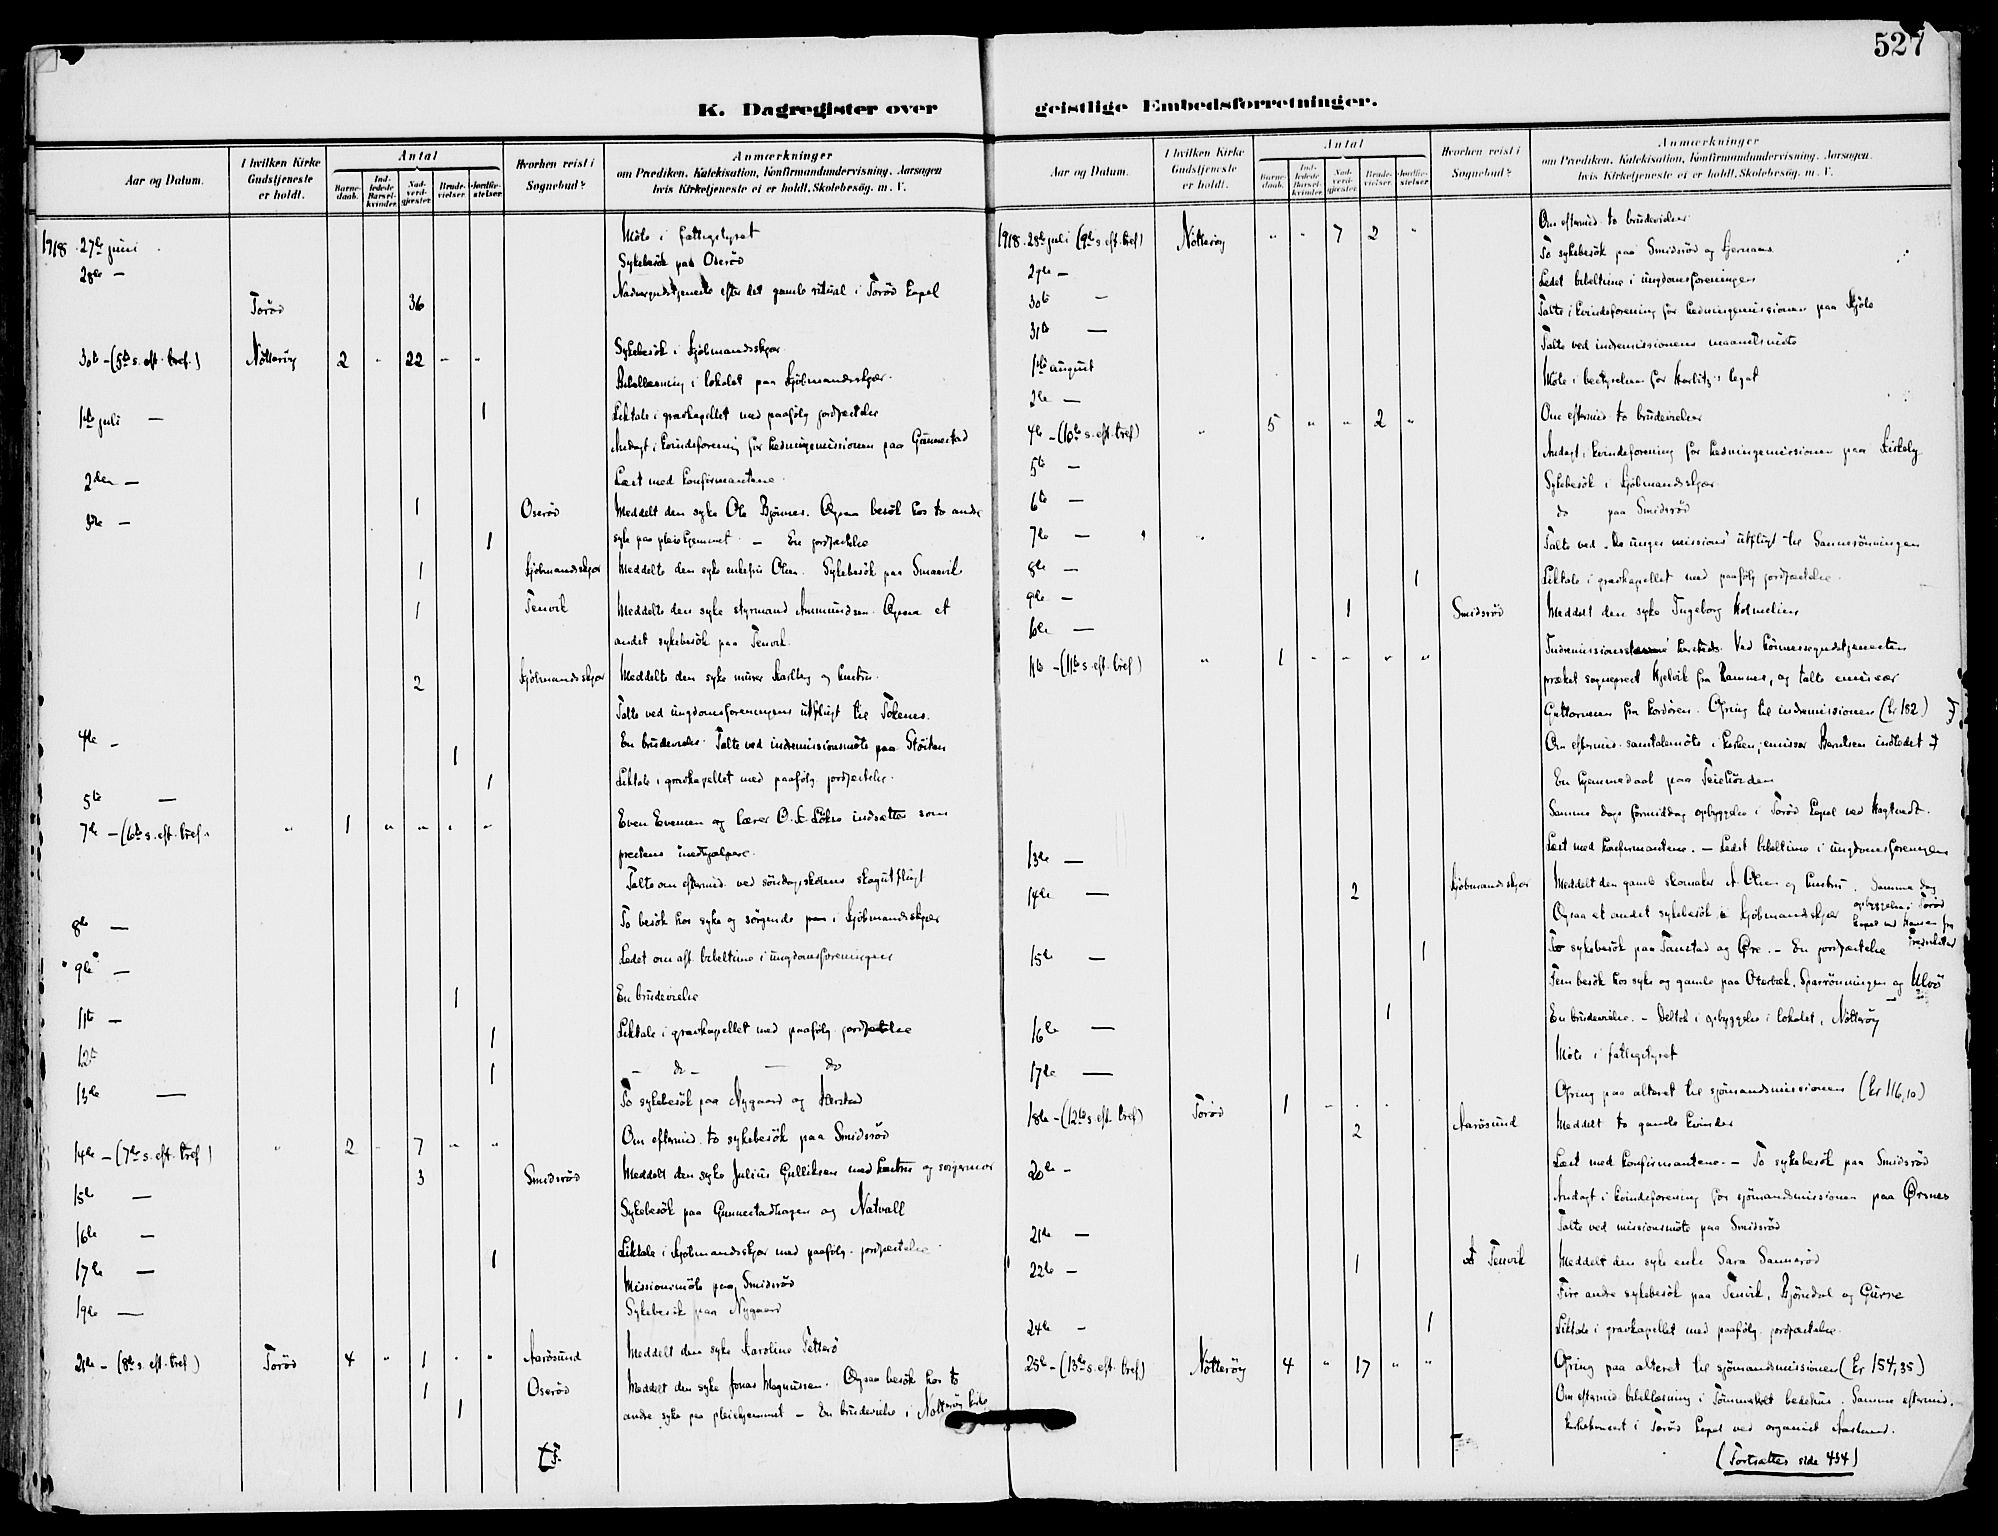 527
K. Dagregister over
geistlige Embedsforretninger.
Aar og Datum.
I hvilken Kirke Gudstjeneste er holdt.
Antal
Barnedaab.
Indledede Barselkvinder.
Nadverdgjester.
Brudevielser.
Jordfæstelser.
Hvorhen reist i Sognebud?
Anmærkninger
om Prædiken, Katekisation, Konfirmandundervisning, Aarsagen
hvis Kirketjeneste ei er holdt, Skolebesøg, m. V.
1918 27de juni Møte i fattigstyret
28de — Sykebesøk paa Oserød
Torød 36 efter det gamle ritual i Torød kapel
30te - (5te s. eft. tref.) Nøtterøy 2 " 22 " " Sykebesøk i Fjøbmandsskjær
Bibellæsning i lokalet paa Kjøbmandsskjær
1ste juli — 1 Liktale i gravkapellet med paafølg. jordfæstelse
Andagt i kvindeforening for hedningemissionen paa Gunnestad
2den — Læst med konfirmantene
3de — 1 Oserød Meddelt den syke Ole Bjønnes. Ogsaa besøk hos to andre
1 syke paa pleiehjemmet — En jordfæstelse
1 Kjøbmandsskjær Meddelte den syke enkefru Olsen. Sykebesøk paa Smaavik
1 Tenvik Meddelte den syke styrmand Ammundsen. Ogsaa et
andet sykebesøk paa Tenvik.
2 Kjøbmandsskjær Meddelte den syke murer Karlberg og hustru.
Talte ved ungdomsforeningens utflugt til Tokenes.
4de — 1 En brudevielse. Talte ved indremissionsmøte paa Støiten
5te — 1 Liktale i gravkapellet med paafølg. jordfæstelse.
7de — (6te s. eft. tref. " 1 " " " " Even Evensen og lærer O. F. Løkse indsættes som
prestens medhjælpere.
Talte om eftermid. ved søndagsskolens skogutflugt
8de — To besøk hos syke og sørgende i Kjøbmandsskjær
9de — Ledet om aft. bibeltime i ungdomsforeningen
11te — 1 En brudevielse
12te 1 Liktale i gravkapellet med paafølg. jordfæstelse
13de — 1 — do — — do
To sykebesøk paa Nygaard og
14de — (7de s. eft. tref) " 2 " 7 " " Om eftermid. to sykebesøk paa Smidsrød
15de — 3 Smidsrød Meddelt den syke Julius Gulliksen med hustru og svigermor
16de — Sykebesøk paa Gunnestadhagen og Natvall
17de — 1 Liktale i Kjøbmandsskjær med paafølg. jordfæstelse
Missionsmøte paa Smidsrød
19de — Sykebesøk paa Nygaard
21de — (8de s. eft. tref) Torød 4 " 1 " " Aarøsund Meddelt den syke Karoline Petterø
1 Oserød Meddelt den syke Jonas Magnussen. Ogsaa besøk hos to
1 andre syke paa pleiehjemmet — En brudevielse i Nøtterøy kirke
Aar og Datum.
I hvilken Kirke Gudstjeneste er holdt.
Antal
Barnedaab.
Indledede Barselkvinder.
Nadverdgjester.
Brudevielser.
Jordfæstelser.
Hvorhen reist i Sognebud?
Anmærkninger
om Prædiken, Katekisation, Konfirmandundervisning, Aarsagen
hvis Kirketjeneste ei er holdt, Skolebesøg, m. V.
1918 28de juli (9de s. eft. tref) Nøtterøy " " 7 2 " Om eftermid. to brudevielser
To sykebesøk paa Smidsrød og
29de — Ledet bibeltime i ungdomsforeningen
30te — Talte i kvindeforening for hedningemissionen paa
31te — Talte ved indremissionens maanedsmøte
1ste august Møte i bestyrelsen for legat
2de —
4de — (10de s. eft. tref) " 5 " " 2 " Om eftermid. to brudevielser
5te — Andagt i kvindeforening for hedningemissionen paa Kirkeby
6te — Sykebesøk i Kjøbmandsskjær
do paa Smidsrød
7de — Talte ved "De unges missions" utflugt til Sannesønningen
8de — 1 Liktale i gravkapellet med paafølg. jordfæstelse
9de — 1 Smidsrød Meddelt den syke Ingeborg Holmelien
10de —
11te — (11te s. eft. tref) " 1 " " " " Ved høimessegudstjenesten
præket sogneprest Kjelvik fra Ramnes, og talte emissær
Guttormsen fra Kordøen. Ofring til indremissionen (kr 182)
Om eftermid. samtalemøte i kirken; emissær Berntsen indledet
En hjemmedaab paa Teiehøiden
Samme dags formiddag opbyggelse i Torød kapel ved Hagtvedt.
13de — Læst med konfirmantene. — Ledet bibeltime i ungdomsforeningen
14de — 2 Kjøbmandsskjær Meddelt den gamle skomaker A. Olsen og hustru. Samme dag
Ogsaa et andet sykebesøk i Kjøbmandsskjær opbyggelse i Torød
kapel ved Hansen fra
15de — 1 To sykebesøk paa Tanstad og Øre. — En jordfæstelse Fredrikstad
Fem besøk hos syke og gamle paa Oterbæk, Sparrønningen og Ulvø
16de — 1 En brudevielse. — Deltok i opbyggelse i lokalet, Nøtterøy
17de — Møte i fattigstyret
18de — (12te s. eft. tref) Torød 1 " " " Ofring paa alteret til sjømandsmissionen (kr 116,10)
2 Aarøsund Meddelt to gamle kvinder
20de — Læst med konfirmantene. — To sykebesøk paa Smidsrød
Andagt i kvindeforening for sjømandsmissionen paa Ørsnes
21de — Talte ved missionsmøte paa Smidsrød
22de — 1 Tenvik Meddelt den syke enke Sara Sannerød
Fire andre sykebesøk paa Tenvik, Bjønndal og Gurre
24de — 1 Liktale i gravkapellet med paafølg. jordfæstelse.
25de — (13de s. eft. tref) Nøtterøy 4 " 17 " " Ofring paa alteret til sjømandsmissionen (kr 154,35)
Om eftermid. bibellæsning i bedehus. Samme eftermid.
kirkekonsert i Torød kapel ved organist Aaslund.
(Fortsættes side 434)